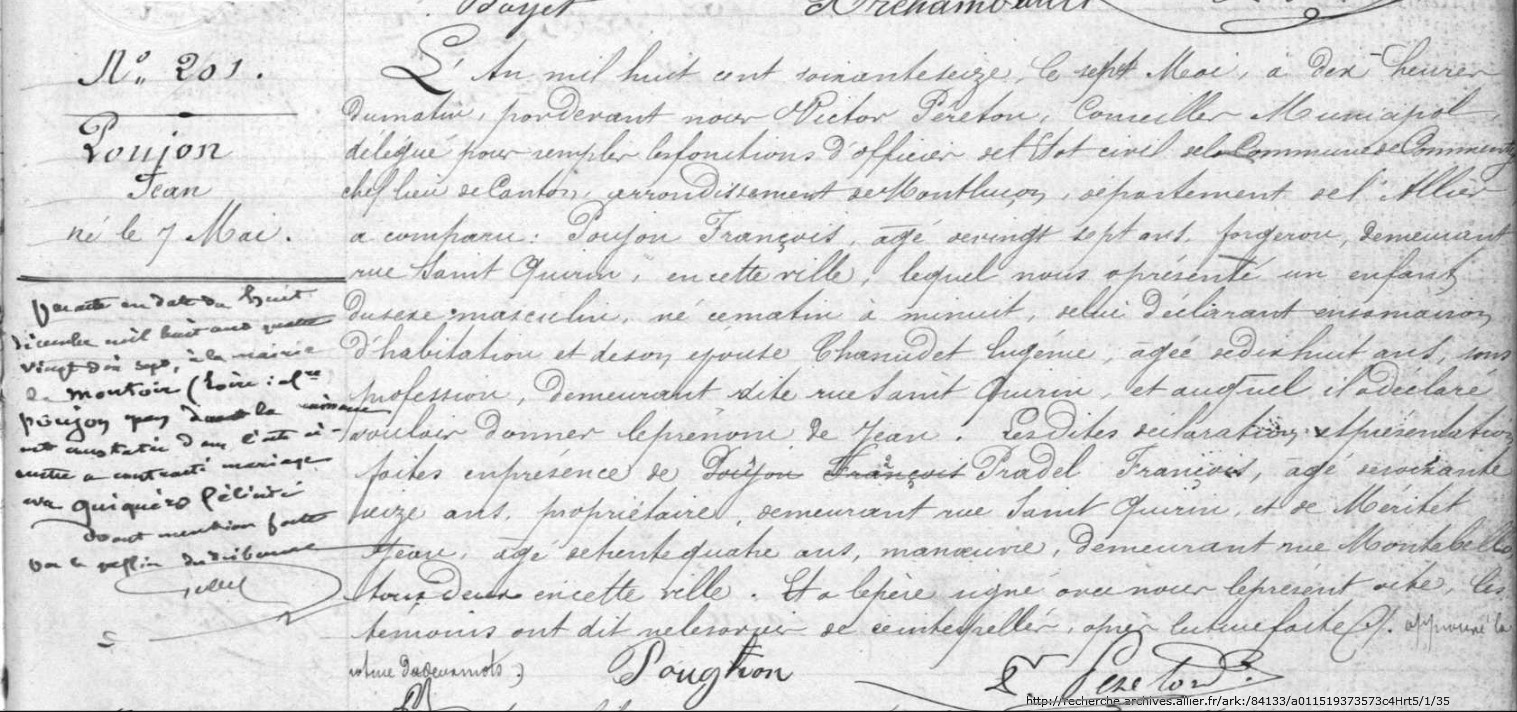 Boyet Archambault
N° 201.
Poujon
Jean
né le 7 Mai.
L'An mil huit cent soixante seize, le sept Mai, à dix heures
du matin, par devant nous Victor Péreton, Conseiller Municipal,
délégué pour remplir les fonctions d'officier de l'Etat civil de la Commune de Commentry
chef lieu de Canton, arrondissement de Montluçon, département de l'Allier
a comparu: Poujon François, âgé de vingt sept ans, forgeron, demeurant
rue Saint Quirin, en cette ville, lequel nous a présenté un enfant
du sexe masculin, né ce matin à minuit, de lui déclarant en sa maison
d'habitation et de son épouse Chanudet Eugénie, âgée de dix huit ans, sans
profession, demeurant dite rue Saint Quirin, et auquel il a déclaré
vouloir donner le prénom de Jean. Les dites déclaration et présentation
faites en présence de Poujon François Pradel François, âgé de soixante
seize ans, propriétaire, demeurant rue Saint Quirin, et de Méritet
Jean, âgé de trente quatre ans, manœuvre, demeurant rue Montebello
tous deux en cette ville. Et a le père signé avec nous le présent acte, les
témoins ont dit ne le savoir de ce interpellés, après lecture faite. approuvé la
rature de deux mots.)
Poughon Vr Pereton
Par acte en date du huit
décembre mil huit cent quatre
vingt dix sept, à la mairie
de Montoir (Loire: Infre
Poujon Jean dont la naissance
est constatée dans l'acte ci-
contre a contracté mariage
avec Guiquéro Félicité
dont mention faite
par le greffier du tribunal
http://recherche.archives.allier.fr/ark:/84133/a011519373573c4Hrt5/1/35